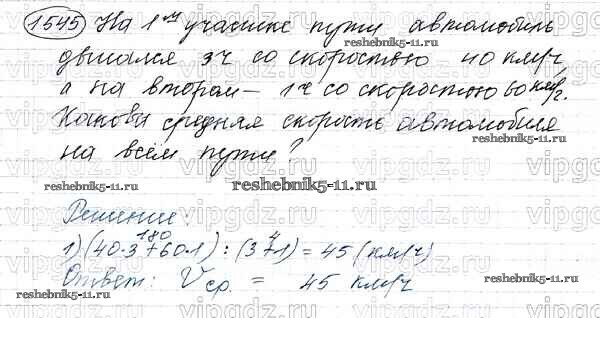 1545 На 1ᵒᵐ участке пути автомобиль
двигался 3ч со скоростью 40 км/ч,
а на втором – 1ч со скоростью 60 км/ч.
Какова средняя скорость автомобиля
на всём пути?
Решение:
180 4
1) (40·3+60·1) : (3+1) = 45 (км/ч)
Ответ: Vср. = 45 км/ч
reshebnik5-11.ru
vipgdz.ru